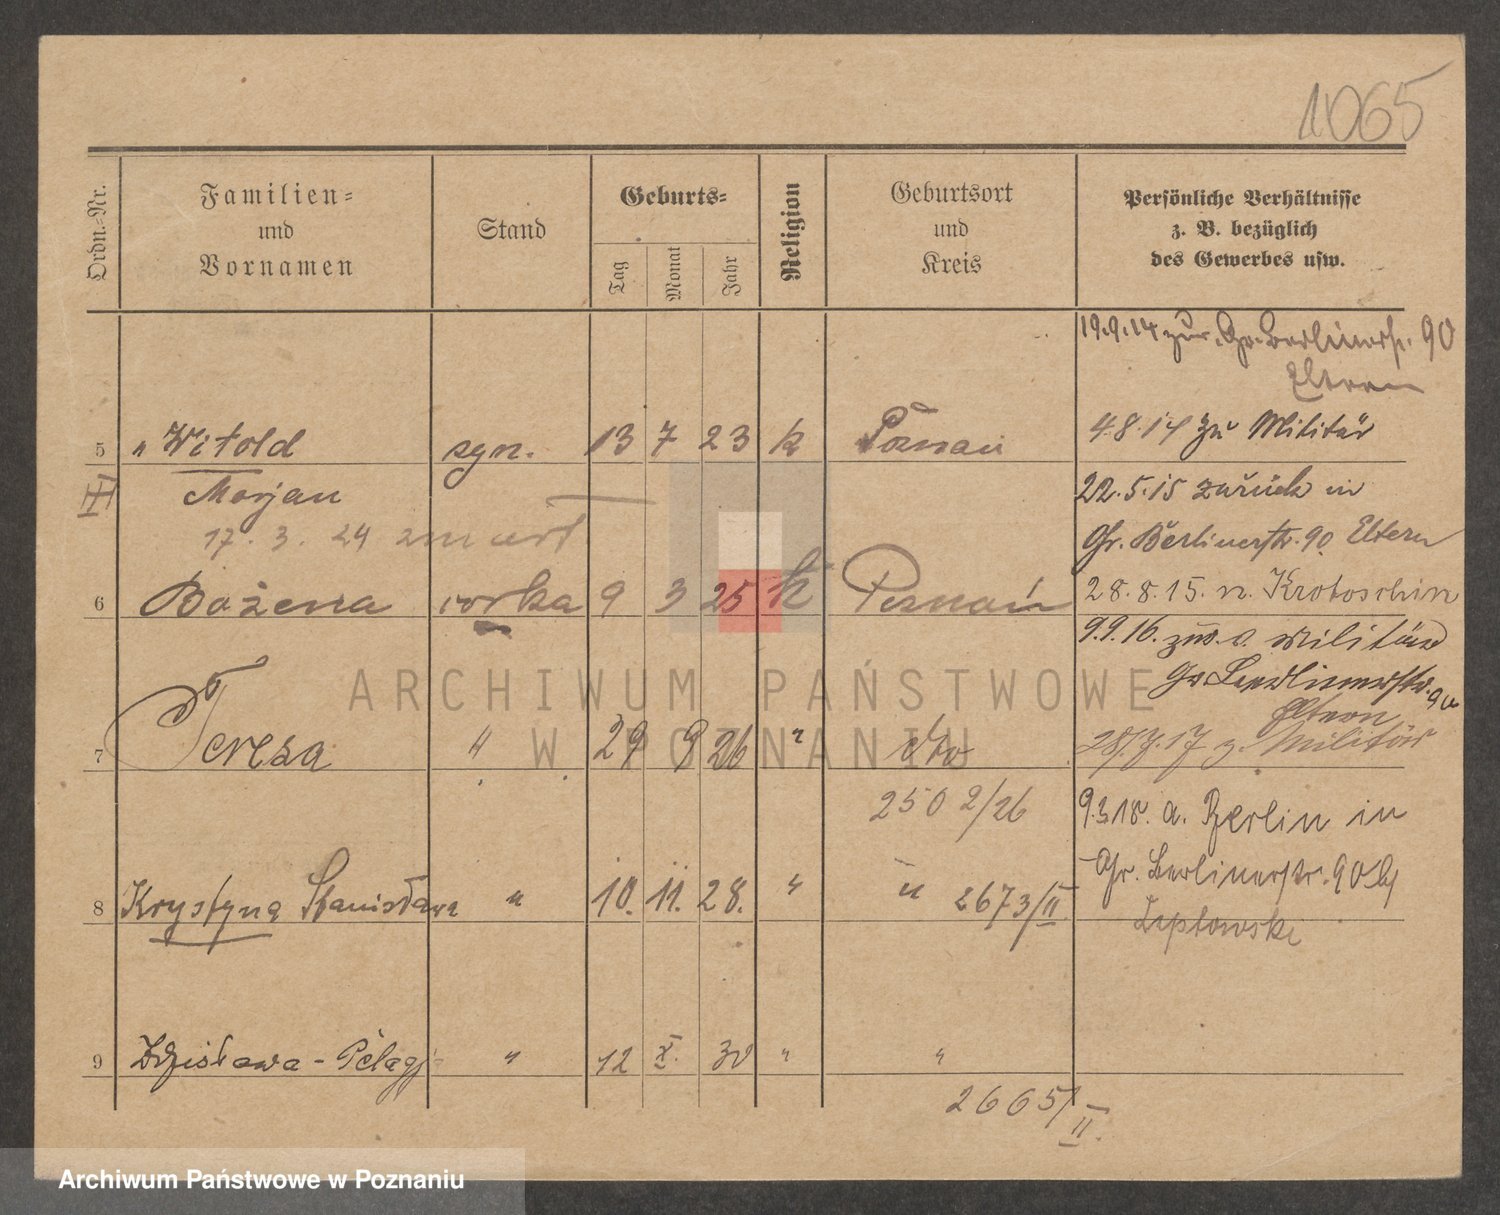 1065
Ordn.-Nr.
Familien-
und
Vornamen
Stand
Geburts-
Tag
Monat
Jahr
Religion
Geburtsort
und
Kreis
Persönliche Verhältnisse
z. B. bezüglich
des Gewerbes usw.
19.9.14 zur. Gr. Berlinerstr. 90
Eltern
5 " Witold syn. 13 7 23 k Poznań
4.8.14 zu Militär
Marjan
22.5.15 zurück in
17. 3. 24 zmarł
Gr. Berlinerstr. 90 Eltern
6 Bożena córka 9 3 25 k Poznań
28.8.15. n. Krotoschin
9.9.16. Militär
Gr. Berlinerstr. 90
Eltern
7 Tereza " 29 9 26 " dto
17 z. Militär
2502/26
9.3.18. a. Berlin in
Gr. Berlinerstr. 90 b/
8 Krystyna Stanisława " 10. 11. 28. " " 2673/II
Zeptowski
9 Zdzisława - Pelagj " 12 X. 30 " "
2665/II.
ARCHIWUM PAŃSTWOWE
W POZNANIU
Archiwum Państwowe w Poznaniu